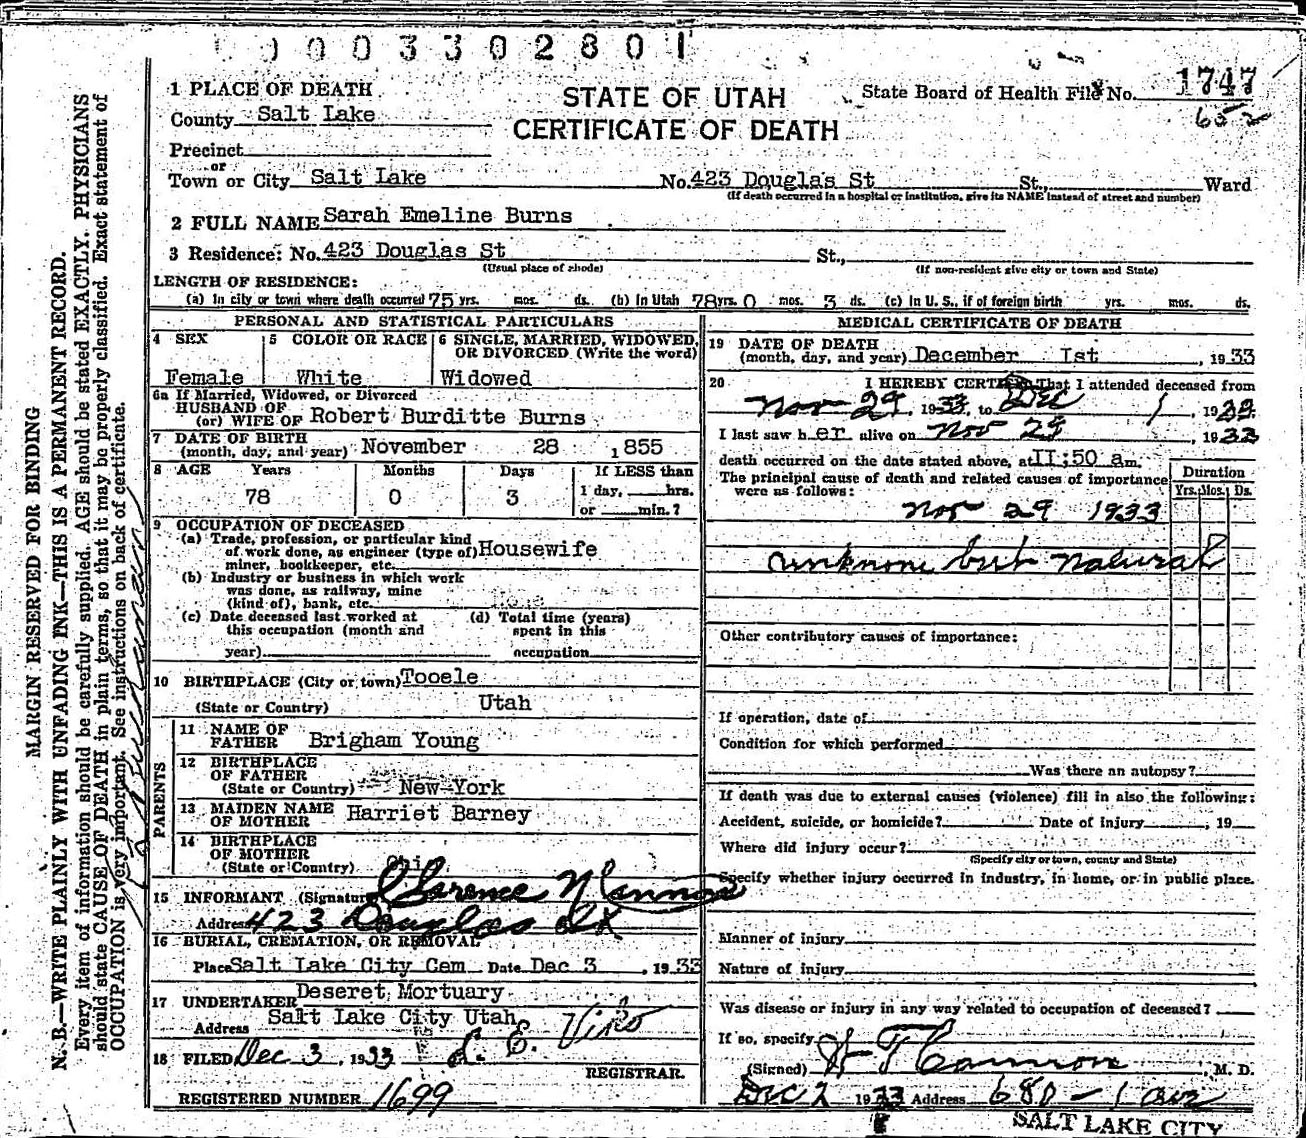 0003302801
1 PLACE OF DEATH
STATE OF UTAH
CERTIFICATE OF DEATH
State Board of Health File No. 1747
652
County Salt Lake
Precinct
or
Town or City Salt Lake No. 423 Douglas St St., Ward
(If death occurred in a hospital or institution, give its NAME instead of street and number)
2 FULL NAME Sarah Emeline Burns
3 Residence: No. 423 Douglas St St.,
(Usual place of abode) (If non-resident give city or town and State)
LENGTH OF RESIDENCE:
(a) In city or town where death occurred 75 yrs. mos. ds. (b) In Utah 78 yrs. 0 mos. 3 ds. (c) In U. S., if of foreign birth yrs. mos. ds.
PERSONAL AND STATISTICAL PARTICULARS
4 SEX
Female
5 COLOR OR RACE
White
6 SINGLE, MARRIED, WIDOWED,
OR DIVORCED (Write the word)
Widowed
6a If Married, Widowed, or Divorced
HUSBAND OF
(or) WIFE OF Robert Burditte Burns
7 DATE OF BIRTH
(month, day, and year) November 28 , 1855
8 AGE Years Months Days If LESS than
78 0 3 1 day, hrs.
or min.?
9 OCCUPATION OF DECEASED
(a) Trade, profession, or particular kind
of work done, as engineer (type of) Housewife
miner, bookkeeper, etc.
(b) Industry or business in which work
was done, as railway, mine
(kind of), bank, etc.
(c) Date deceased last worked at
this occupation (month and
year)
(d) Total time (years)
spent in this
occupation
10 BIRTHPLACE (City or town) Tooele
(State or Country) Utah
PARENTS
11 NAME OF
FATHER Brigham Young
12 BIRTHPLACE
OF FATHER
(State or Country) New York
13 MAIDEN NAME
OF MOTHER Harriet Barney
14 BIRTHPLACE
OF MOTHER
(State or Country) Ohio
15 INFORMANT (Signature) Clarence Cannon
Address 423 Douglas St
16 BURIAL, CREMATION, OR REMOVAL
Place Salt Lake City Cem Date Dec 3 , 1933
17 UNDERTAKER Deseret Mortuary
Address Salt Lake City Utah
18 FILED Dec 3 , 1933 L. E. Viko
REGISTRAR.
REGISTERED NUMBER 1699
MEDICAL CERTIFICATE OF DEATH
19 DATE OF DEATH
(month, day, and year) December Ist , 1933
20 I HEREBY CERTIFY, That I attended deceased from
Nov 29 , 1933, to Dec 1 , 1933
I last saw her alive on Nov 29 , 1933
death occurred on the date stated above, at II:50 am.
The principal cause of death and related causes of importance
were as follows:
Duration
Yrs. Mos. Ds.
Nov 29 1933
unknone but natural
Other contributory causes of importance:
If operation, date of
Condition for which performed
Was there an autopsy?
If death was due to external causes (violence) fill in also the following:
Accident, suicide, or homicide? Date of injury , 19
Where did injury occur?
(Specify city or town, county and State)
Specify whether injury occurred in industry, in home, or in public place.
Manner of injury
Nature of injury
Was disease or injury in any way related to occupation of deceased?
If so, specify
(Signed) H T Cannon , M. D.
Dec 2 1933 Address 680 - 1 ave
SALT LAKE CITY
MARGIN RESERVED FOR BINDING
N. B.—WRITE PLAINLY WITH UNFADING INK—THIS IS A PERMANENT RECORD.
Every item of information should be carefully supplied. AGE should be stated EXACTLY. PHYSICIANS
should state CAUSE OF DEATH in plain terms, so that it may be properly classified. Exact statement of
OCCUPATION is very important. See instructions on back of certificate.